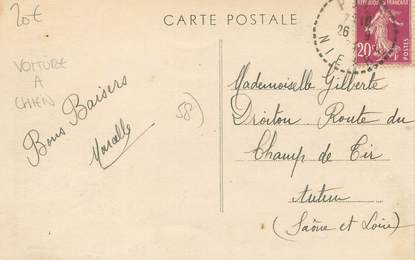 20€
CARTE POSTALE
VOITURE
A
CHIEN
Bons Baisers
Marcelle
58)
26
NIE
20c
POSTES
Mademoiselle Gilberte
Droiton Route du
Champ de Tir
Autun
(Saône et Loire)